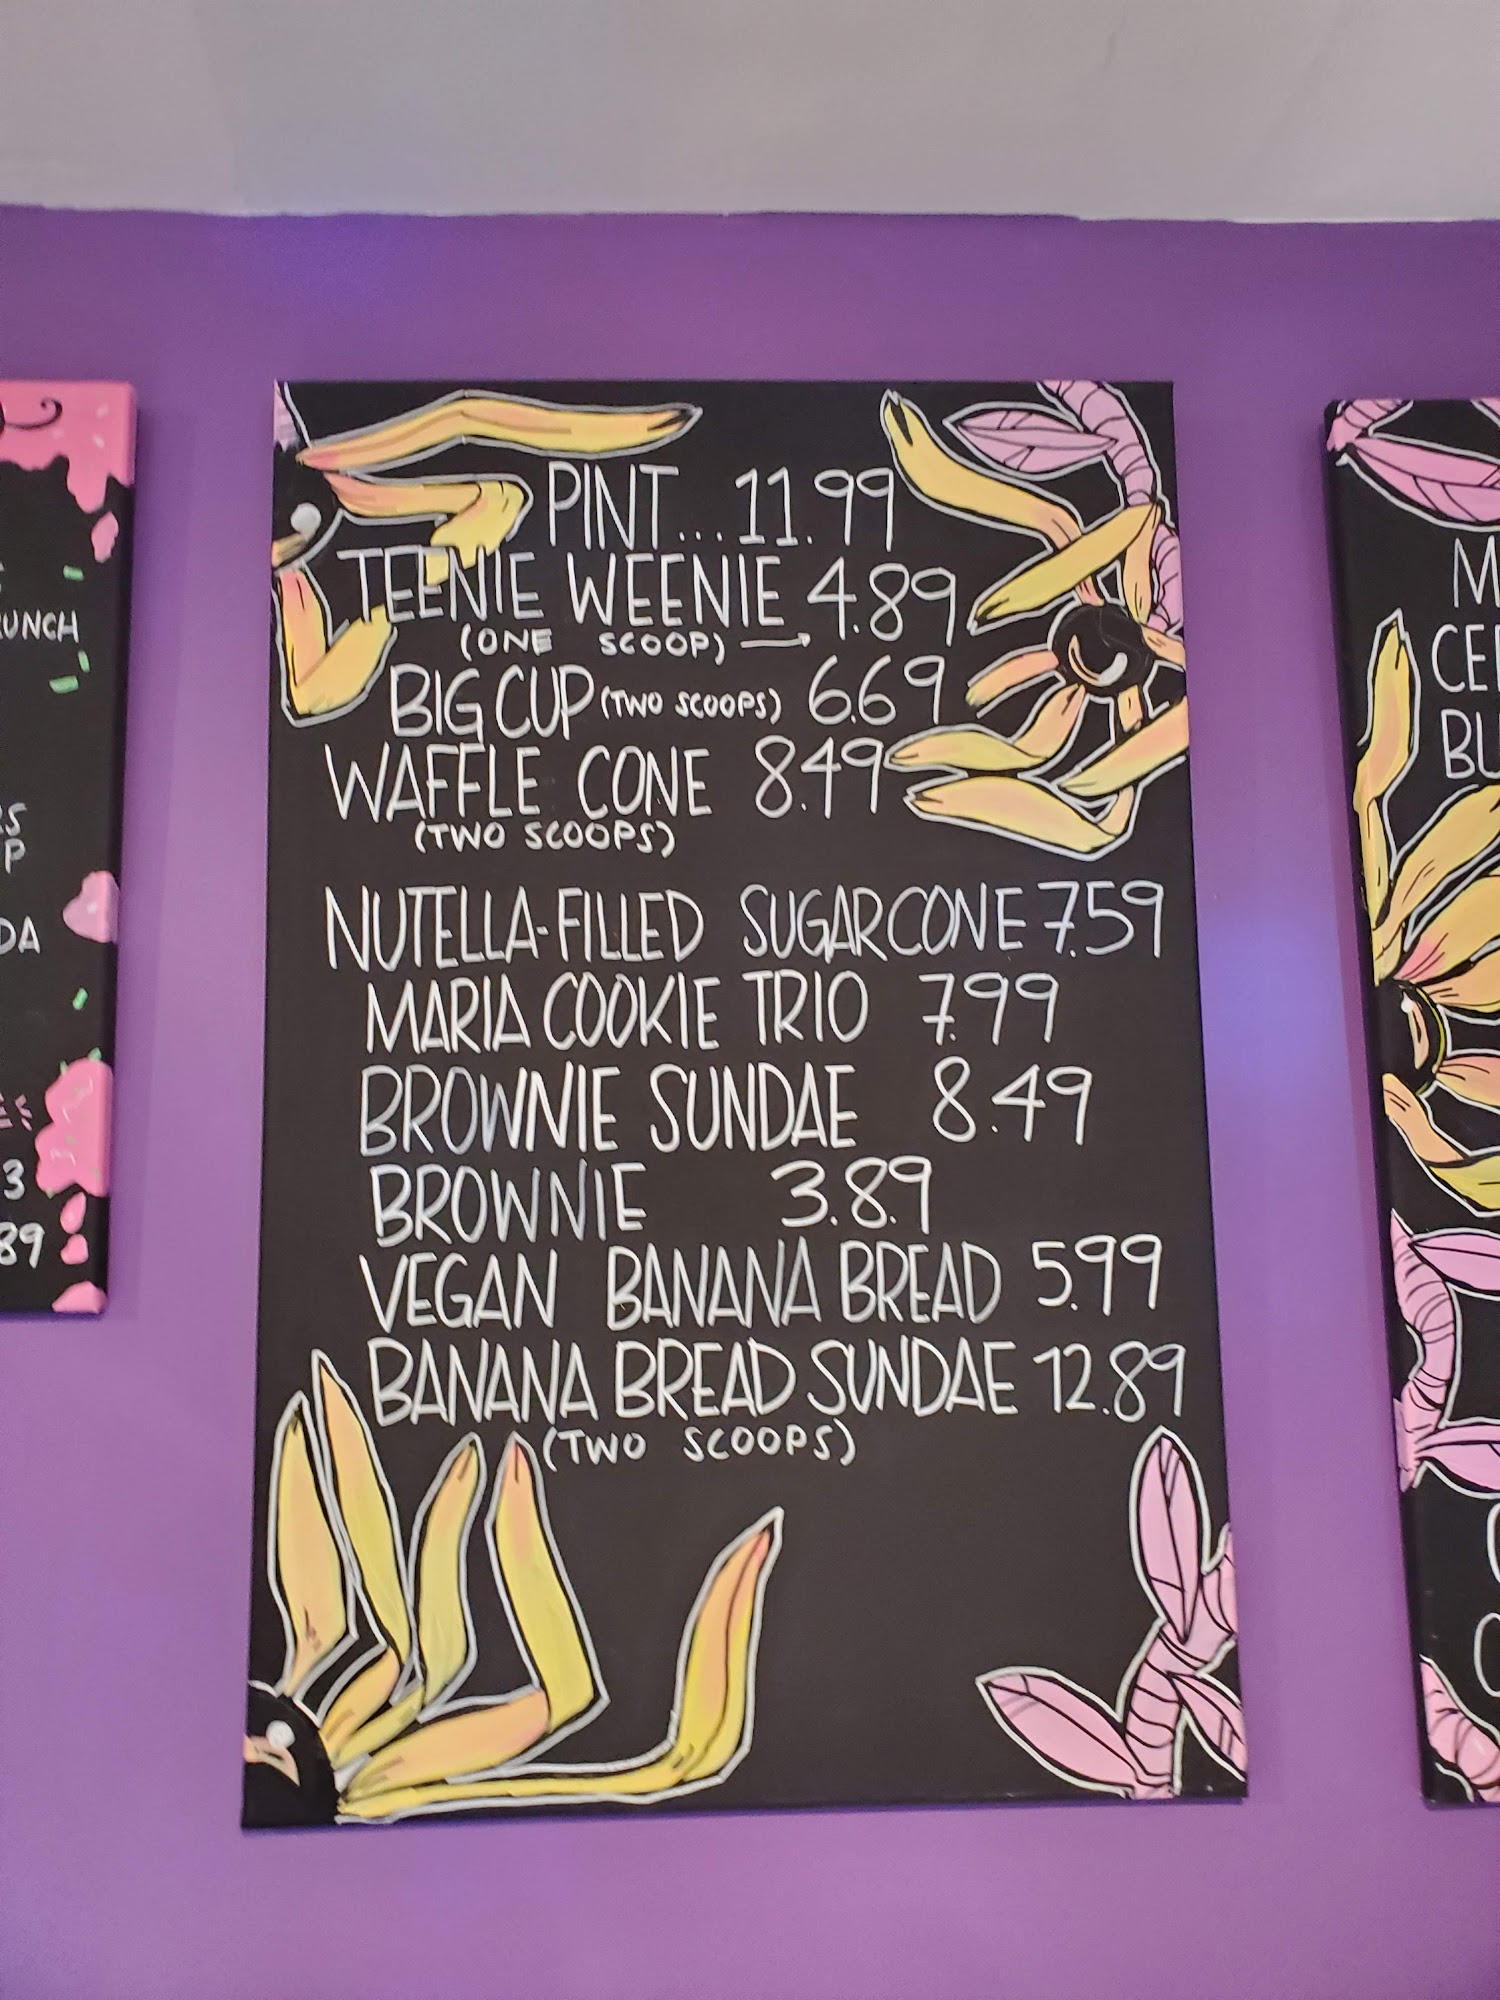 PINT... 11.99
TEENIE WEENIE 4.89
(ONE SCOOP) →
BIG CUP (TWO SCOOPS) 6.69
WAFFLE CONE 8.49
(TWO SCOOPS)
NUTELLA-FILLED SUGAR CONE 7.59
MARIA COOKIE TRIO 7.99
BROWNIE SUNDAE 8.49
BROWNIE 3.89
VEGAN BANANA BREAD 5.99
BANANA BREAD SUNDAE 12.89
(TWO SCOOPS)